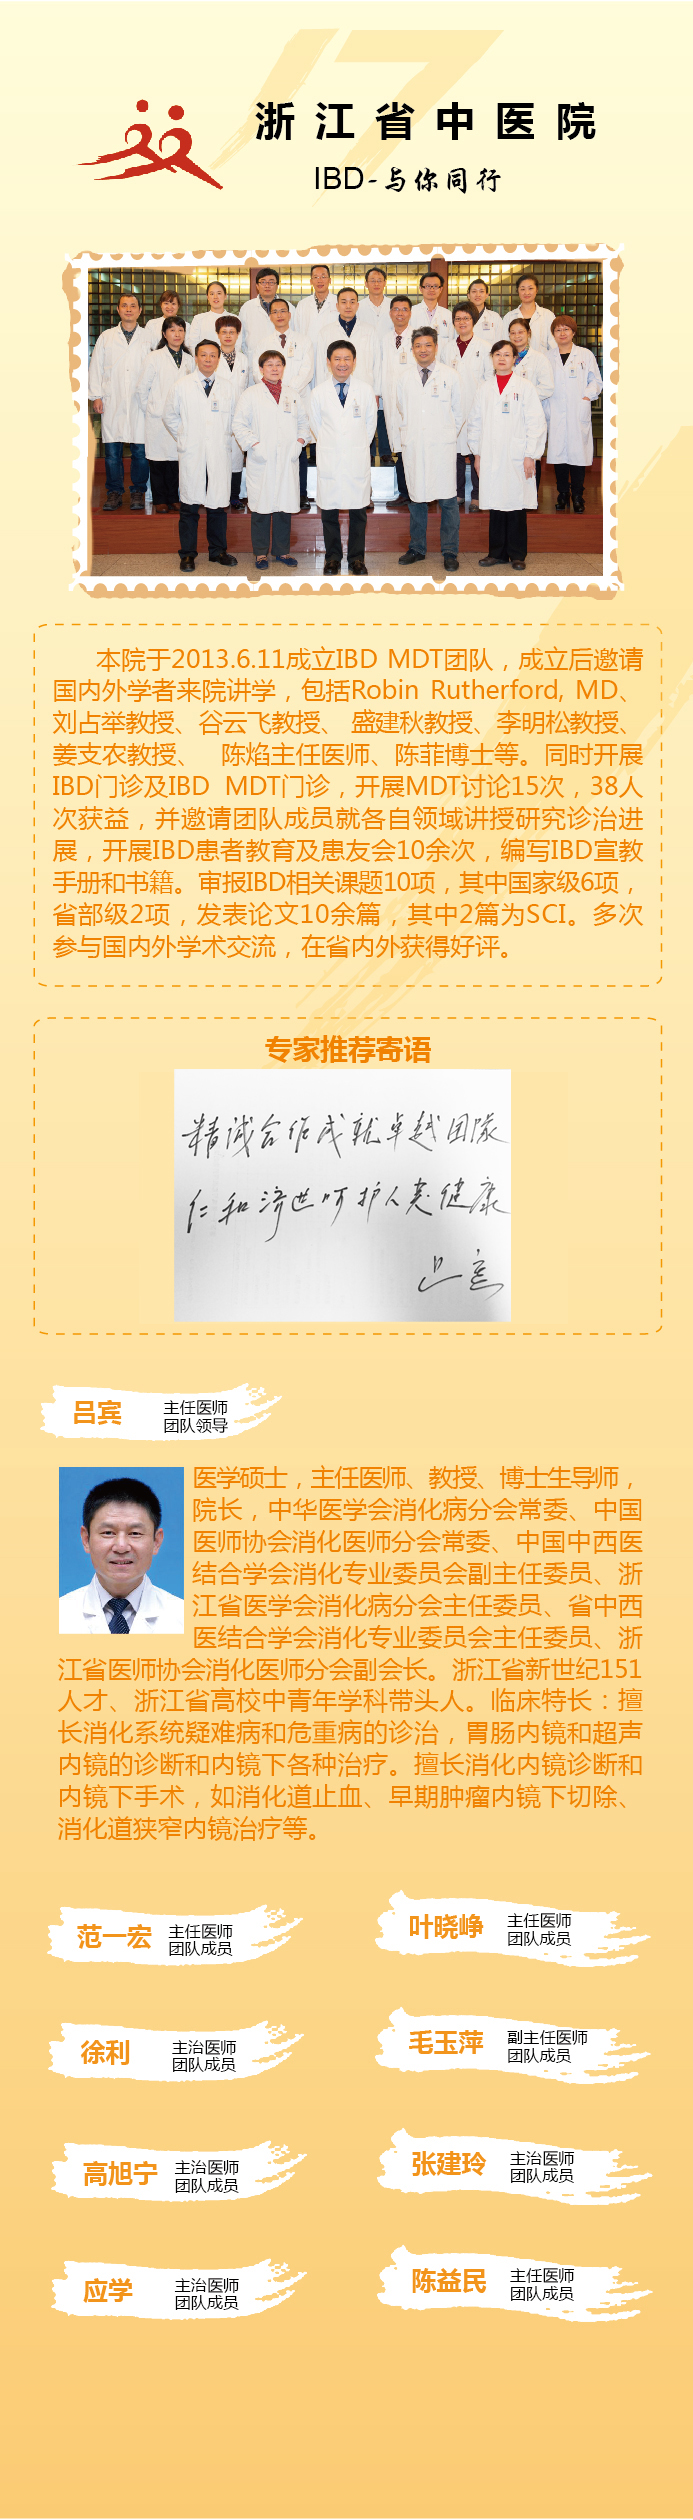 17
浙江省中医院
IBD-与你同行
本院于2013.6.11成立IBD MDT团队，成立后邀请
国内外学者来院讲学，包括Robin Rutherford, MD、
刘占举教授、谷云飞教授、 盛建秋教授、李明松教授、
姜支农教授、 陈焰主任医师、陈菲博士等。同时开展
IBD门诊及IBD MDT门诊，开展MDT讨论15次，38人
次获益，并邀请团队成员就各自领域讲授研究诊治进
展，开展IBD患者教育及患友会10余次，编写IBD宣教
手册和书籍。审报IBD相关课题10项，其中国家级6项，
省部级2项，发表论文10余篇，其中2篇为SCI。多次
参与国内外学术交流，在省内外获得好评。
专家推荐寄语
精诚合作成就卓越团隊
仁和济世呵护人类健康
吕宾
吕宾
主任医师
团队领导
医学硕士，主任医师、教授、博士生导师，
院长，中华医学会消化病分会常委、中国
医师协会消化医师分会常委、中国中西医
结合学会消化专业委员会副主任委员、浙
江省医学会消化病分会主任委员、省中西
医结合学会消化专业委员会主任委员、浙
江省医师协会消化医师分会副会长。浙江省新世纪151
人才、浙江省高校中青年学科带头人。临床特长：擅
长消化系统疑难病和危重病的诊治，胃肠内镜和超声
内镜的诊断和内镜下各种治疗。擅长消化内镜诊断和
内镜下手术，如消化道止血、早期肿瘤内镜下切除、
消化道狭窄内镜治疗等。
范一宏
主任医师
团队成员
叶晓峥
主任医师
团队成员
徐利
主治医师
团队成员
毛玉萍
副主任医师
团队成员
高旭宁
主治医师
团队成员
张建玲
主治医师
团队成员
应学
主治医师
团队成员
陈益民
主任医师
团队成员